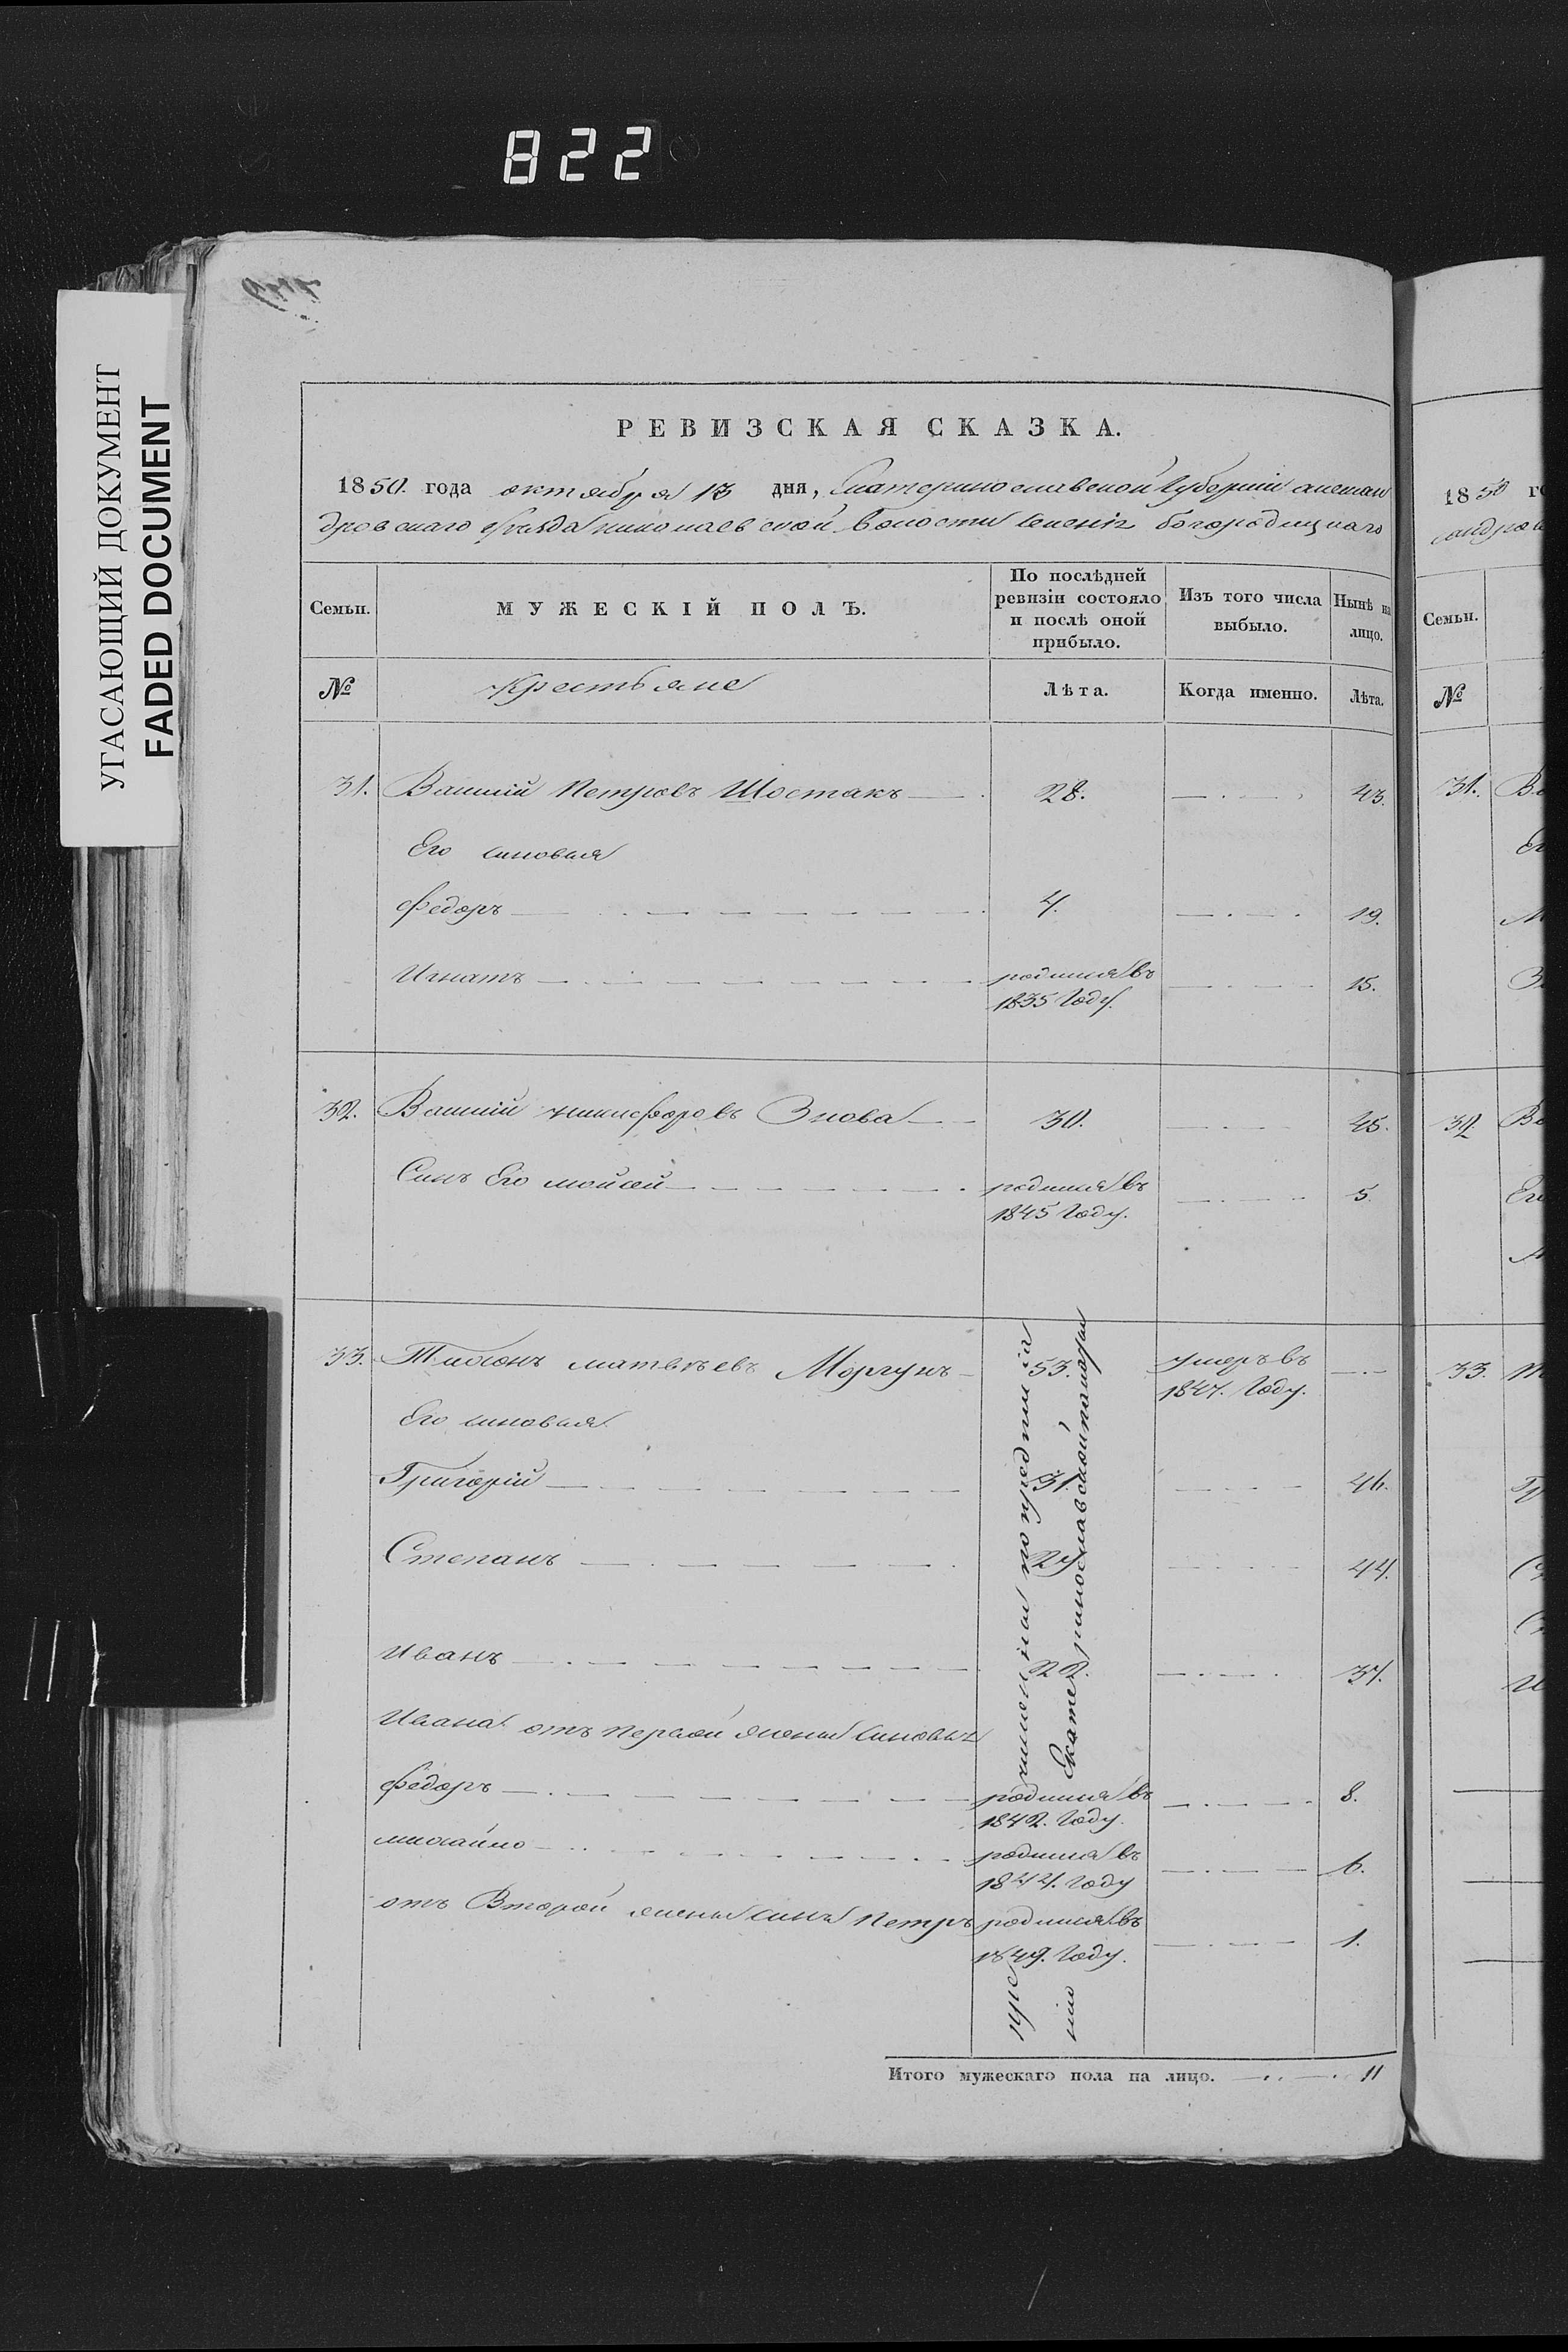 822
УГАСАЮЩИЙ ДОКУМЕНТ
FADED DOCUMENT
РЕВИЗСКАЯ СКАЗКА.
1850. года октября 13 дня, Екатеринославской Губерніи алексан
дровскаго уѣзда николаевской волости селенія богородицкаго
Семьи. МУЖЕСКІЙ ПОЛЪ. По послѣдней ревизіи состояло и послѣ оной прибыло. Изъ того числа выбыло. Нынѣ на лицо.
№ Крестьяне Лѣта. Когда именно. Лѣта.
31. Василій Петровъ Шостакъ 28. 43.
Его синовья
Федоръ 4. 19.
Игнатъ родился въ 15.
1835 Году.
32. Василій никифоровъ Знова 30. 45.
Синъ Его мойсей родился въ 5.
1845 Году.
33. Тихонъ матвѣевъ Моргунъ 53. умеръ въ
1847. Году.
Его синовья
Григорій 31. 46.
Степанъ 29. 44.
Иванъ 22. 37.
Ивана отъ первой жены синовья
Федоръ родился въ 8.
1842. Году.
михайло родился въ 6.
1844. Году
отъ Второй жены синъ Петръ родился въ 1.
1849. Году.
по предписа
Екатеринославской палаты
нію
Итого мужескаго пола на лицо. 11
1850
Семьи.
№
31.
32.
33.